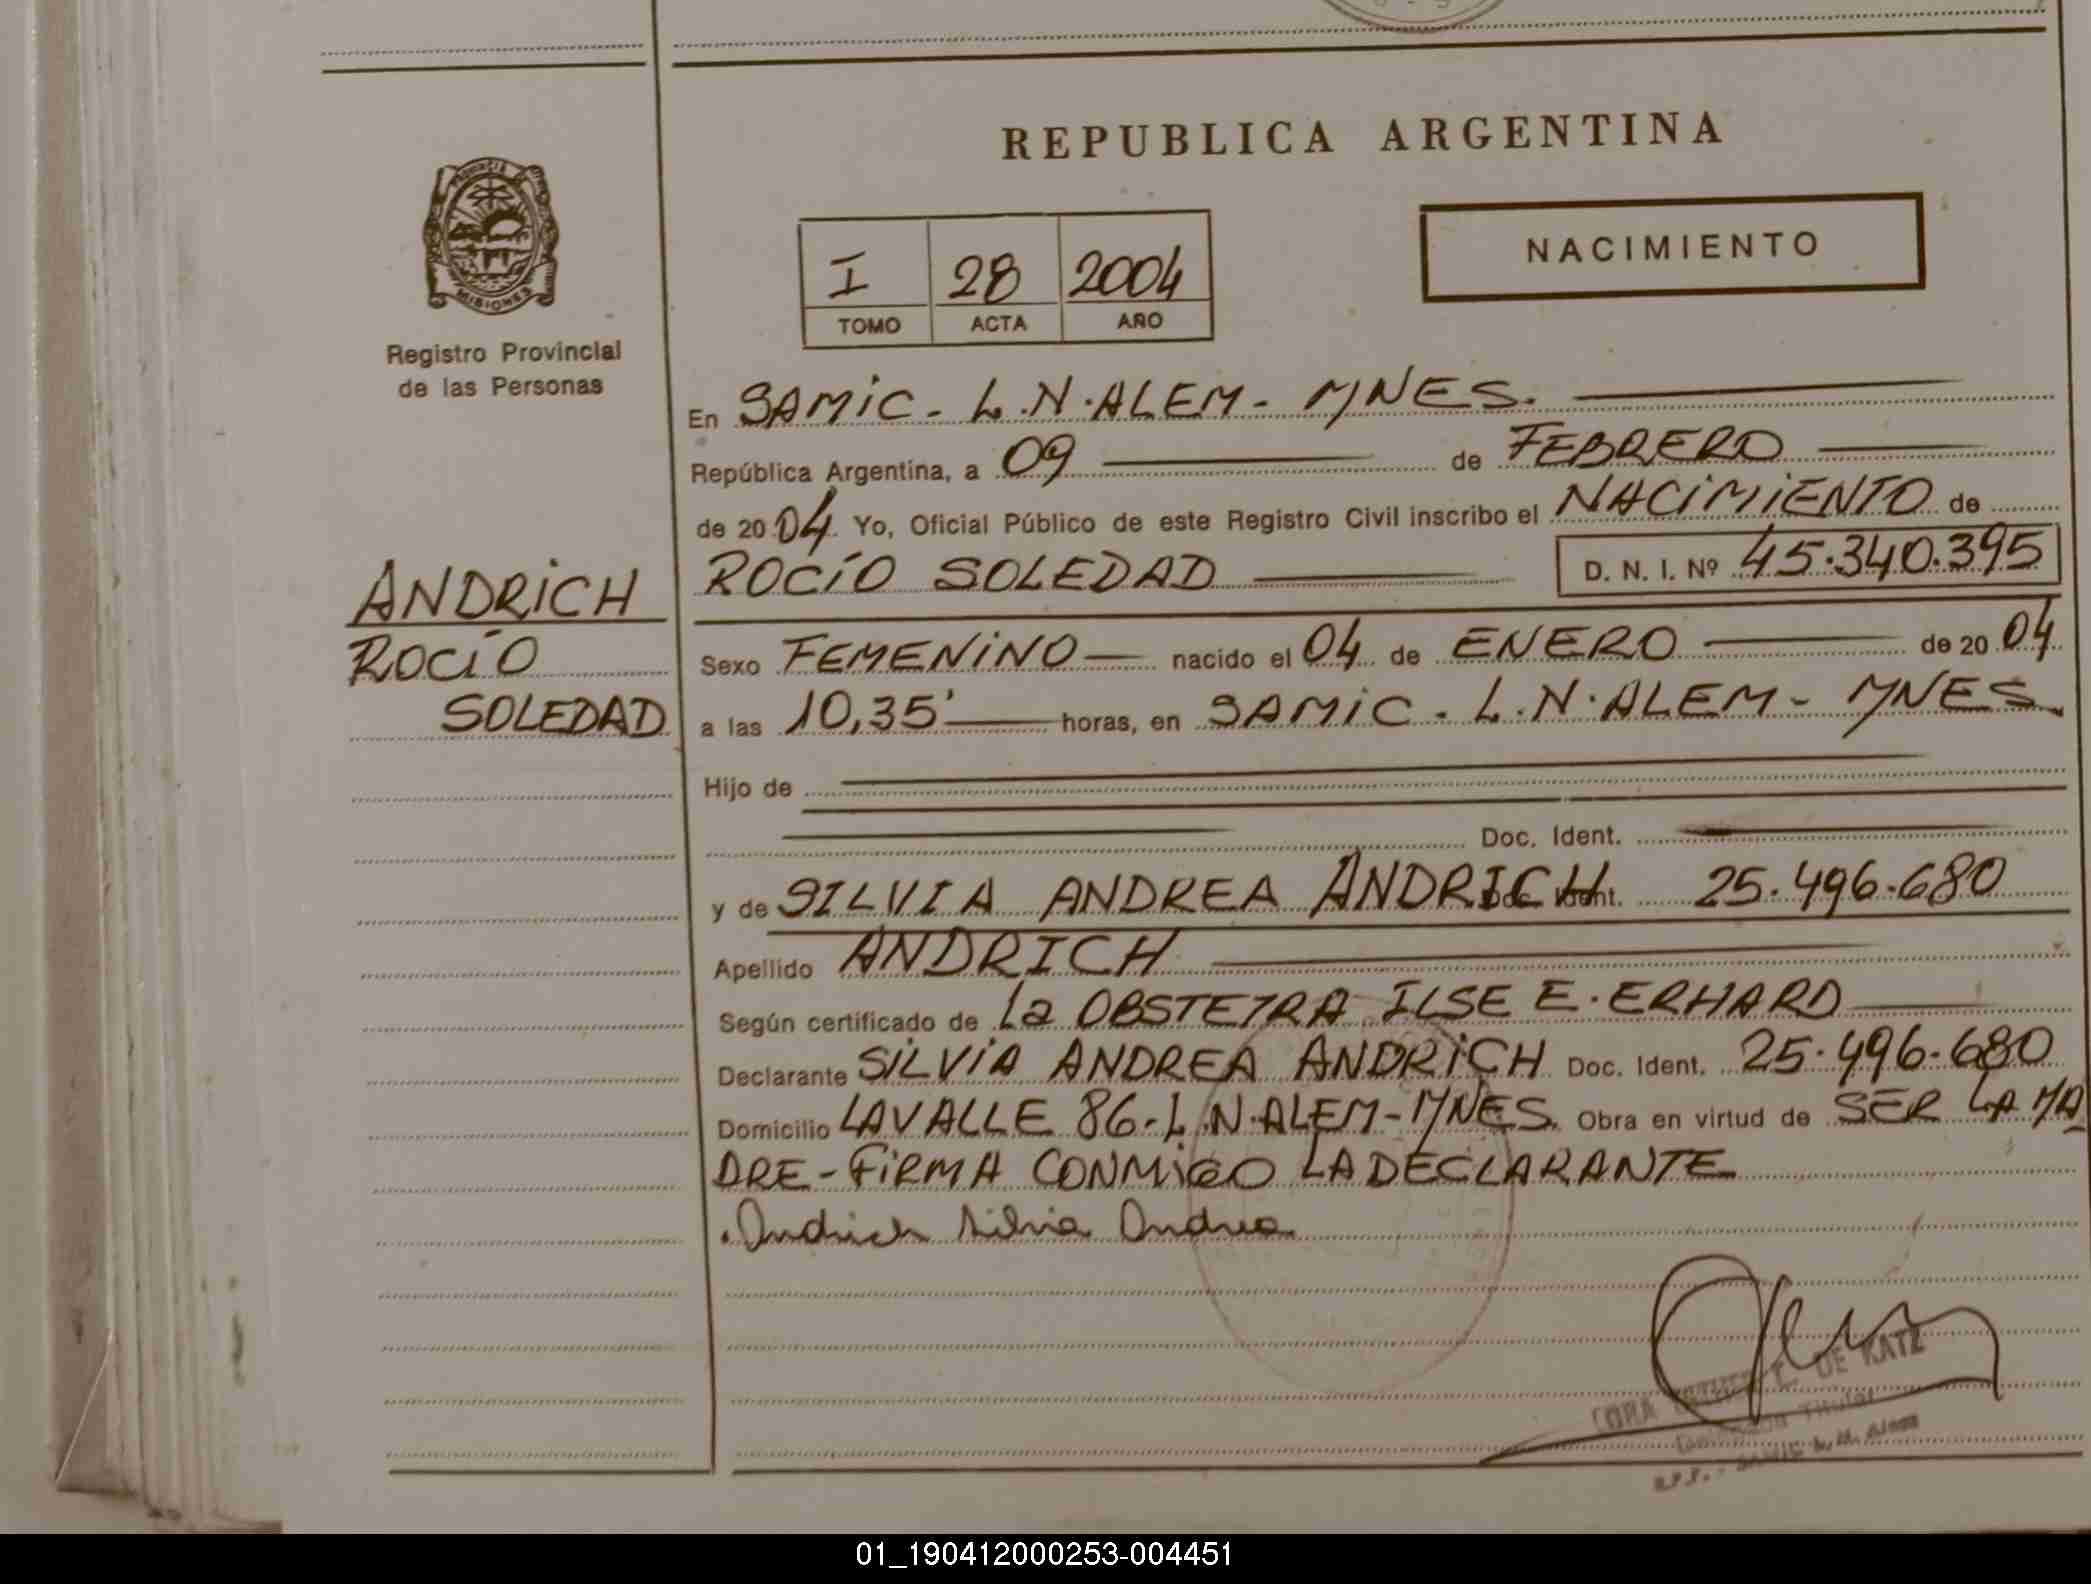 REPUBLICA ARGENTINA
PROVINCIA
MISIONES
Registro Provincial
de las Personas
NACIMIENTO
I 28 2004
TOMO ACTA AÑO
En SAMIC - L.N.ALEM - MNES.
República Argentina, a 09 de FEBRERO
de 2004 Yo, Oficial Público de este Registro Civil inscribo el NACIMIENTO de
ROCÍO SOLEDAD D. N. I. Nº 45.340.395
ANDRICH
ROCÍO
SOLEDAD
Sexo FEMENINO nacido el 04 de ENERO de 2004
a las 10,35' horas, en SAMIC - L.N.ALEM - MNES
Hijo de
Doc. Ident.
y de SILVIA ANDREA ANDRICH Doc. Ident. 25.496.680
Apellido ANDRICH
Según certificado de La OBSTETRA ILSE E. ERHARD
Declarante SILVIA ANDREA ANDRICH Doc. Ident. 25.496.680
Domicilio LAVALLE 86-L.N.ALEM-MNES. Obra en virtud de SER LA MA
DRE - FIRMA CONMIGO LA DECLARANTE
Andrich Silvia Andrea
CORA DE KATZ
Titular
R.P.P. - SAMIC L. N. Alem
01_190412000253-004451